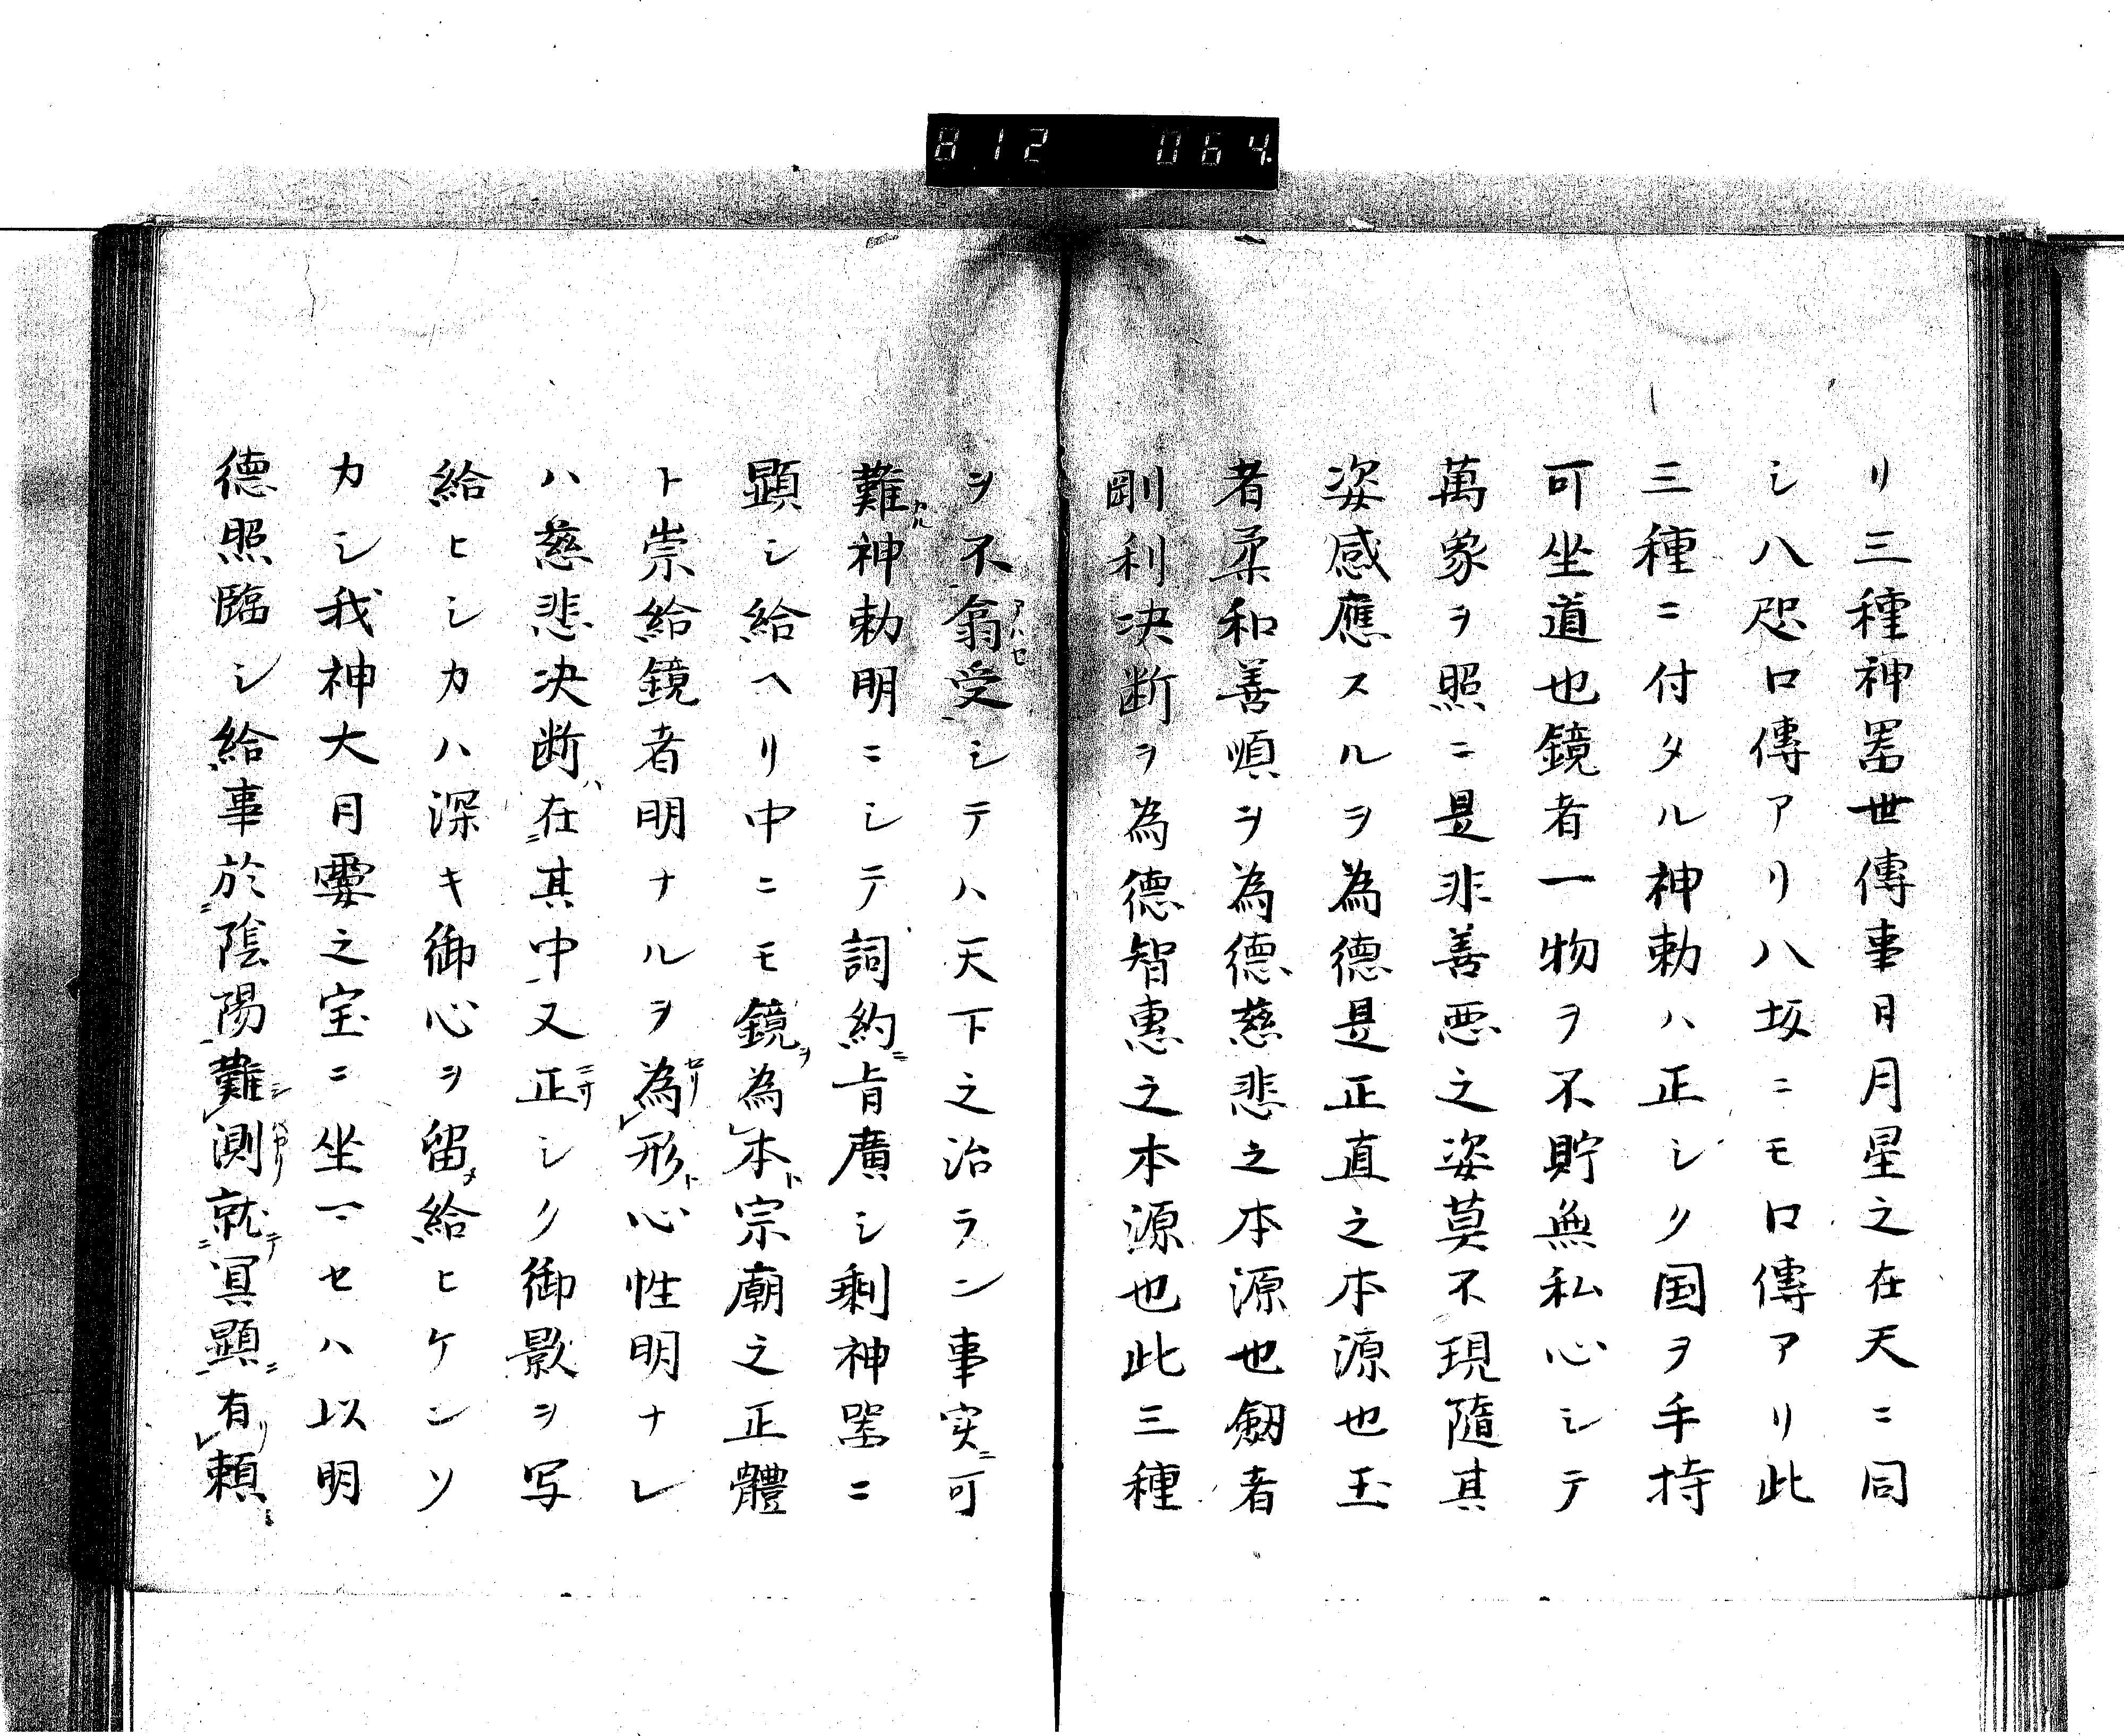 812 064
リ三種神噐世傳事日月星之在天ニ同
シ八咫口傳アリ八坂ニモ口傳アリ此
三種ニ付タル神勅ハ正シク国ヲ手持
可坐道也鏡者一物ヲ不貯無私心シテ
萬象ヲ照ニ是非善悪之姿莫不現隨其
姿感應スルヲ為德是正直之本源也玉
者柔和善順ヲ為德慈悲之本源也劔者
剛利决断ヲ為德智惠之本源也此三種
ヲ不翕受シテハ天下之治ラン事実可
難神勅明ニシテ詞約肯廣シ剩神噐ニ
顕シ給ヘリ中ニモ鏡為本宗廟之正體
ト崇給鏡者明ナルヲ為形心性明ナレ
ハ慈悲决断在其中又正シク御影ヲ写
給ヒシカハ深キ御心ヲ留給ヒケンソ
カシ我神大日霎之宝ニ坐マセハ以明
德照臨シ給事於陰陽難測就冥顕有頼